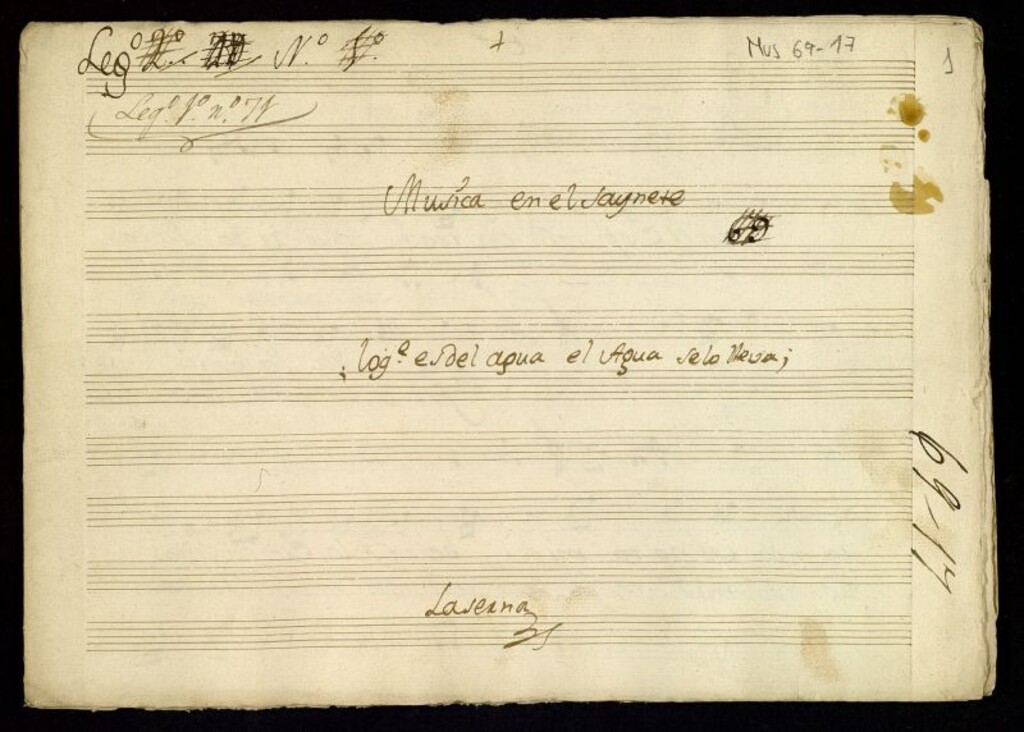 Legº 2º N.º 1º. + Mus 69-17 1
Legº. 1º. n.º 71
Musica en el saynete
69
; loq.e es del agua el Agua se lo lleva;
69-17
Laserna